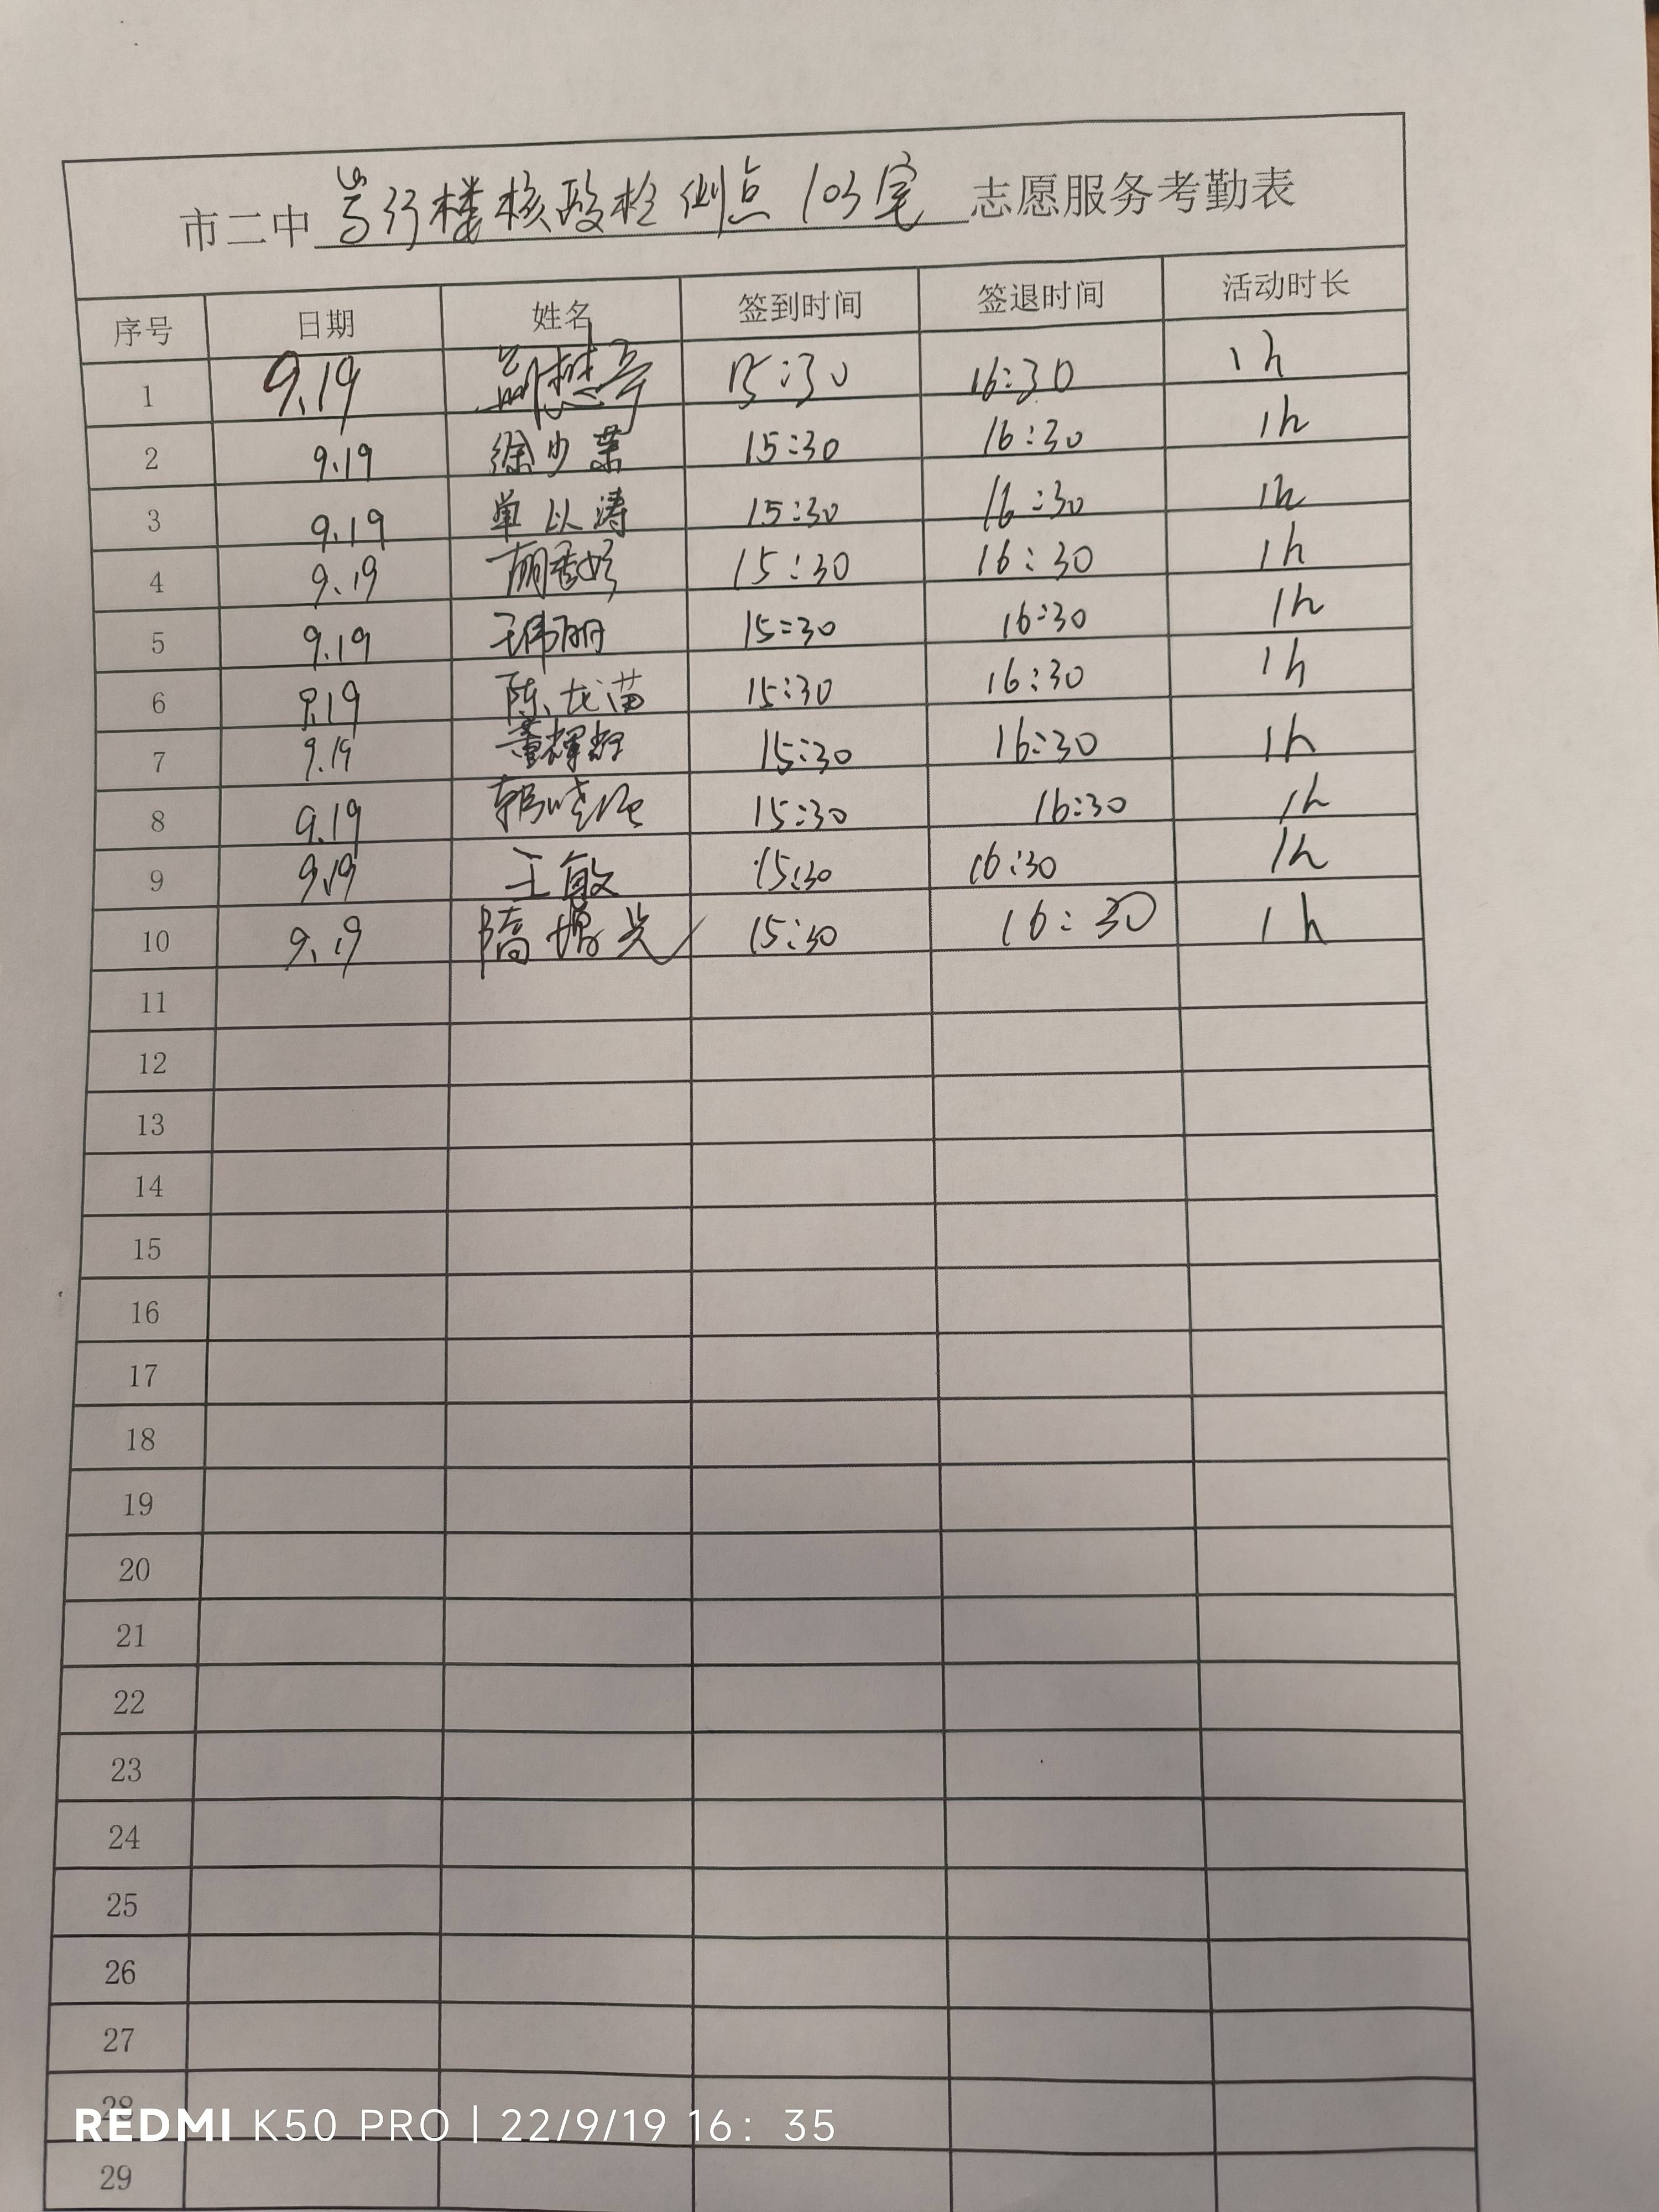 市二中 笃行楼核酸检测点 103室 志愿服务考勤表
序号 日期 姓名 签到时间 签退时间 活动时长
1 9.19 15:30 16:30 1h
2 9.19 徐少業 15:30 16:30 1h
3 9.19 单以涛 15:30 16:30 1h
4 9.19 15:30 16:30 1h
5 9.19 王伟丽 15:30 16:30 1h
6 9.19 陈龙苗 15:30 16:30 1h
7 9.19 董辉辉 15:30 16:30 1h
8 9.19 15:30 16:30 1h
9 9.19 王敏 15:30 16:30 1h
10 9.19 15:30 16:30 1h
11
12
13
14
15
16
17
18
19
20
21
22
23
24
25
26
27
28
REDMI K50 PRO | 22/9/19 16:35
29